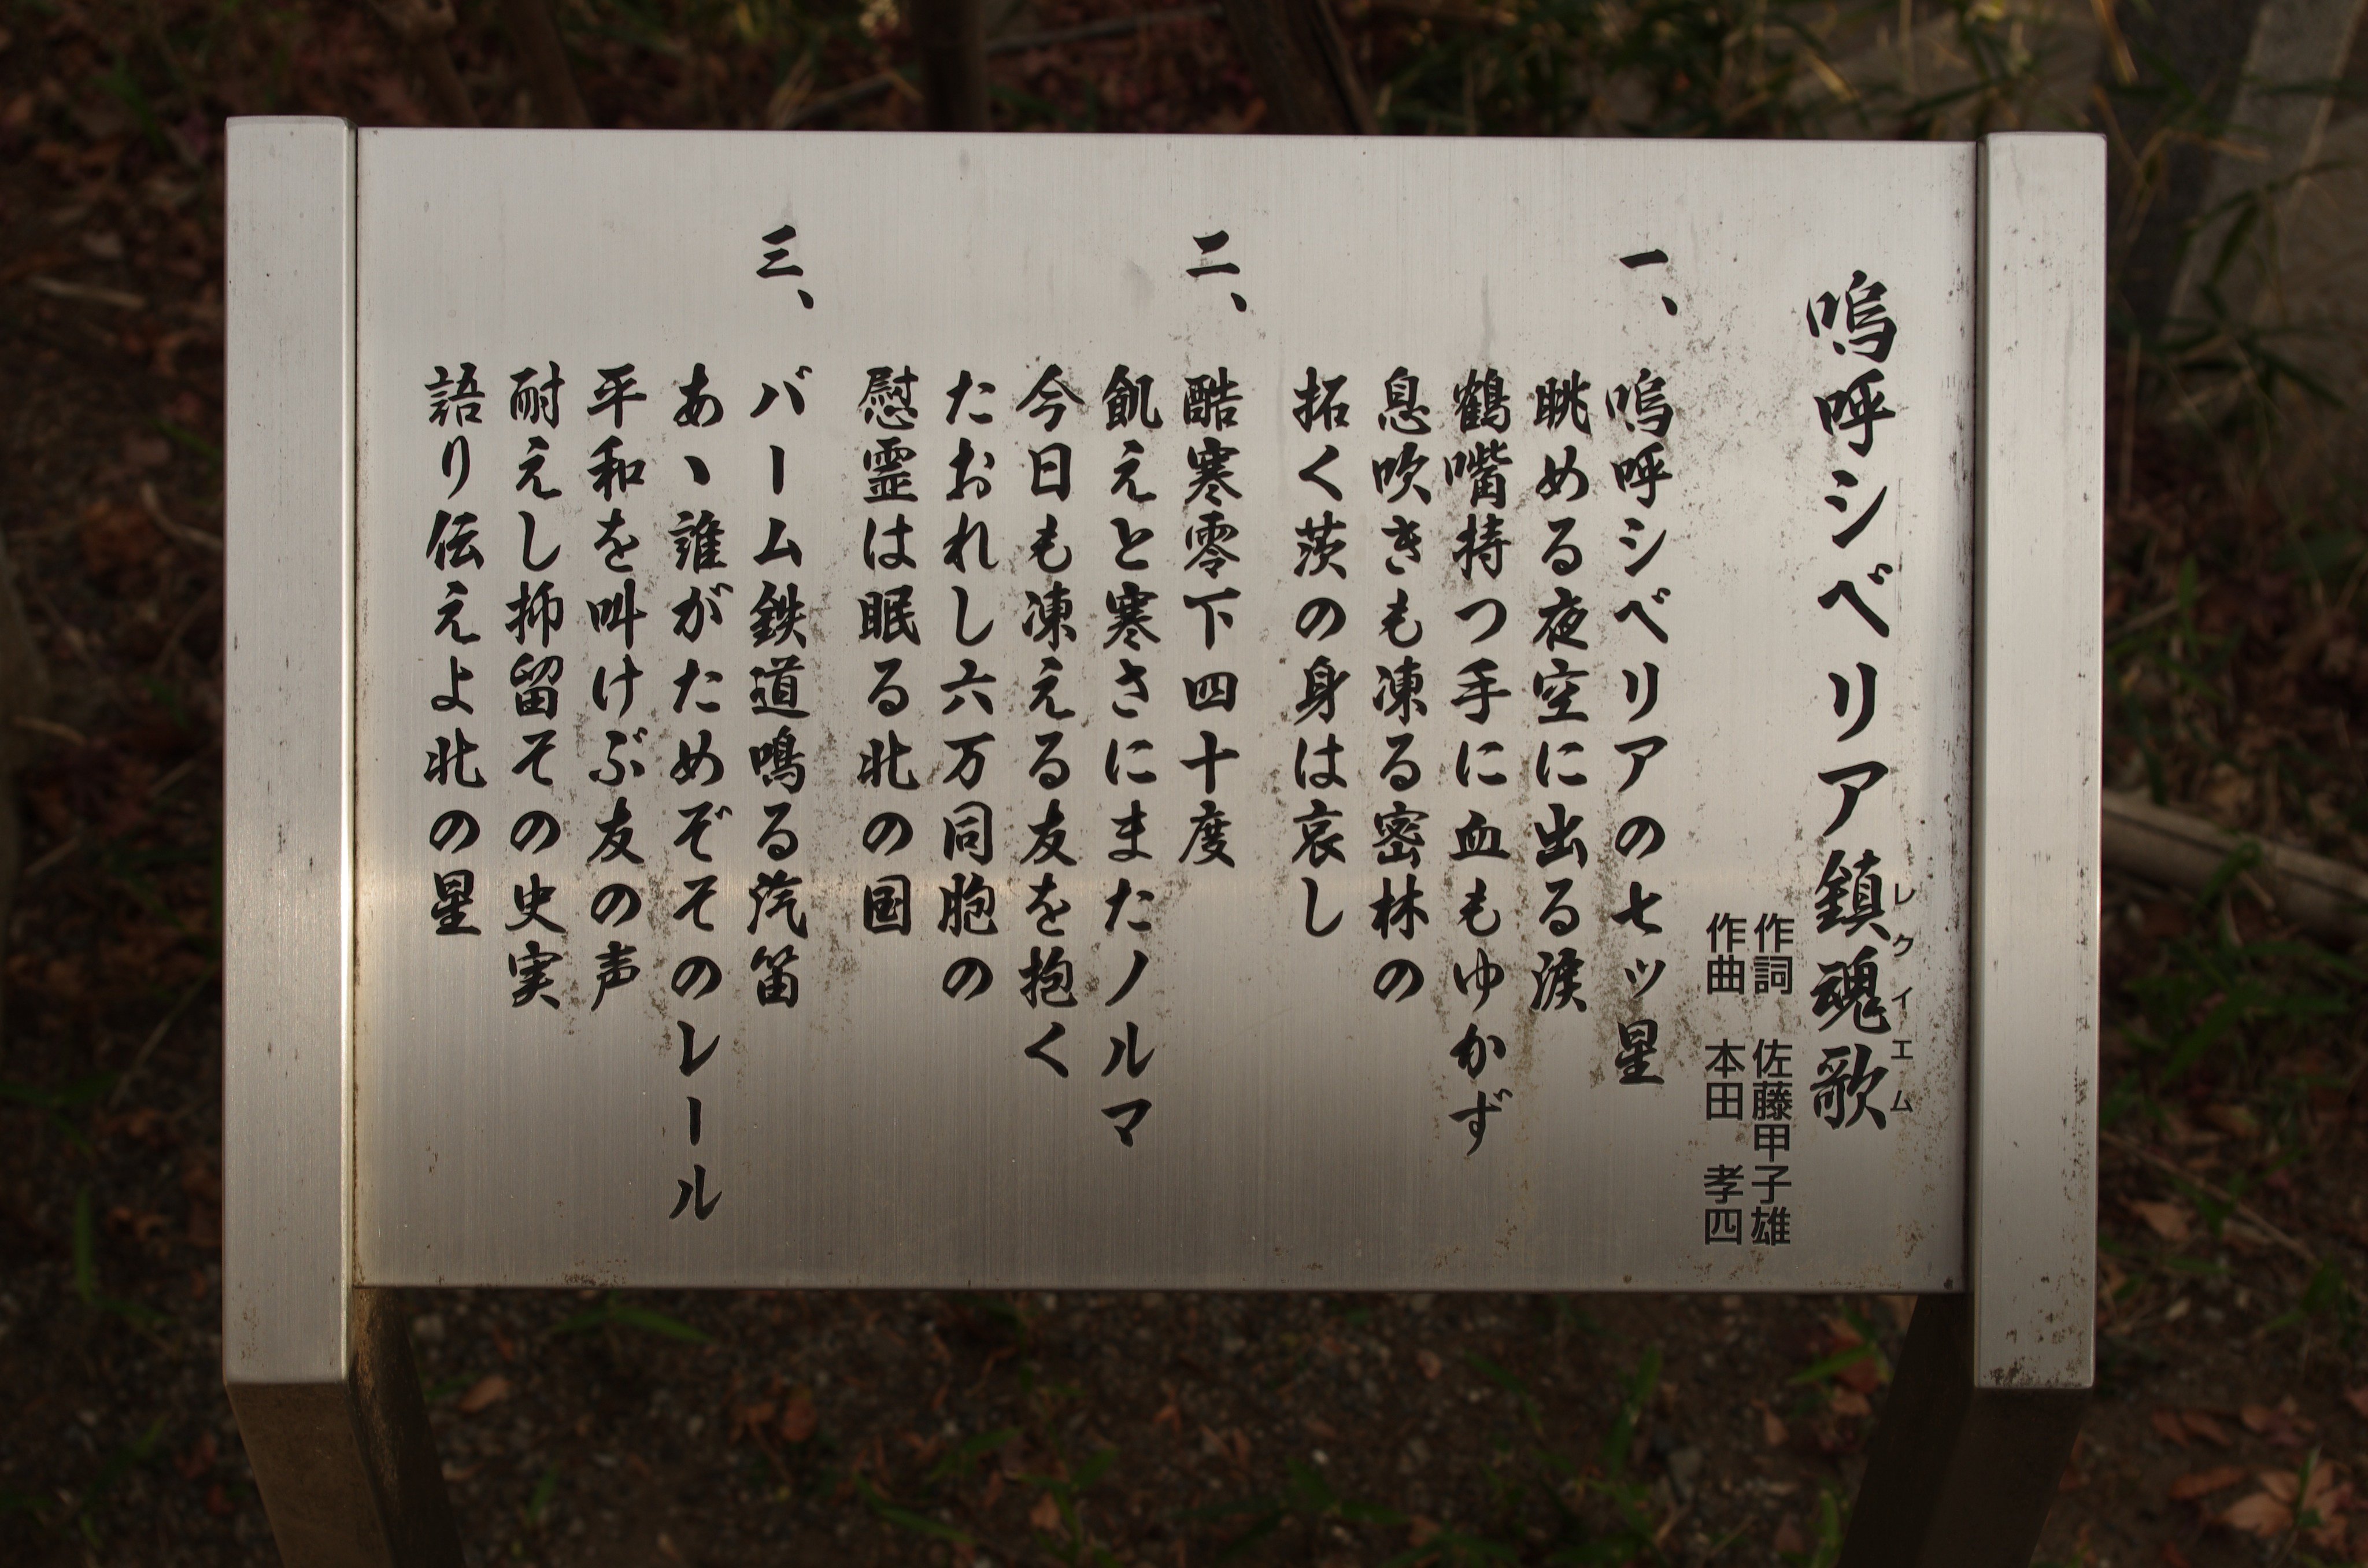 嗚呼シベリア鎮魂歌
レクイエム
作詞 佐藤甲子雄
作曲 本田 孝四
一、
嗚呼シベリアの七ッ星
眺める夜空に出る涙
鶴嘴持つ手に血もゆかず
息吹きも凍る密林の
拓く茨の身は哀し
二、
酷寒零下四十度
飢えと寒さにまたノルマ
今日も凍える友を抱く
たおれし六万同胞の
慰霊は眠る北の国
三、
バーム鉄道鳴る汽笛
あヽ誰がためぞそのレール
平和を叫けぶ友の声
耐えし抑留その史実
語り伝えよ北の星